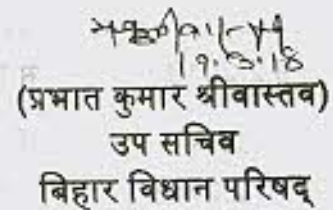 19.3.18
(प्रभात कुमार श्रीवास्तव)
उप सचिव
बिहार विधान परिषद्